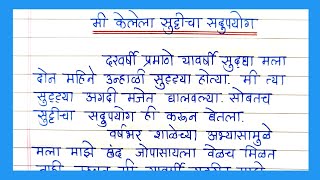 मी केलेला सुट्टीचा सदुपयोग
दरवर्षी प्रमाणे यावर्षी सुद्धा मला
दोन महिने उन्हाळी सुट्ट्या होत्या. मी त्या
सुट्ट्या अगदी मजेत घालवल्या. सोबतच
सुट्टीचा सदुपयोग ही करून घेतला.
वर्षभर शाळेच्या अभ्यासामुळे
मला माझे छंद जोपासायला वेळच मिळत